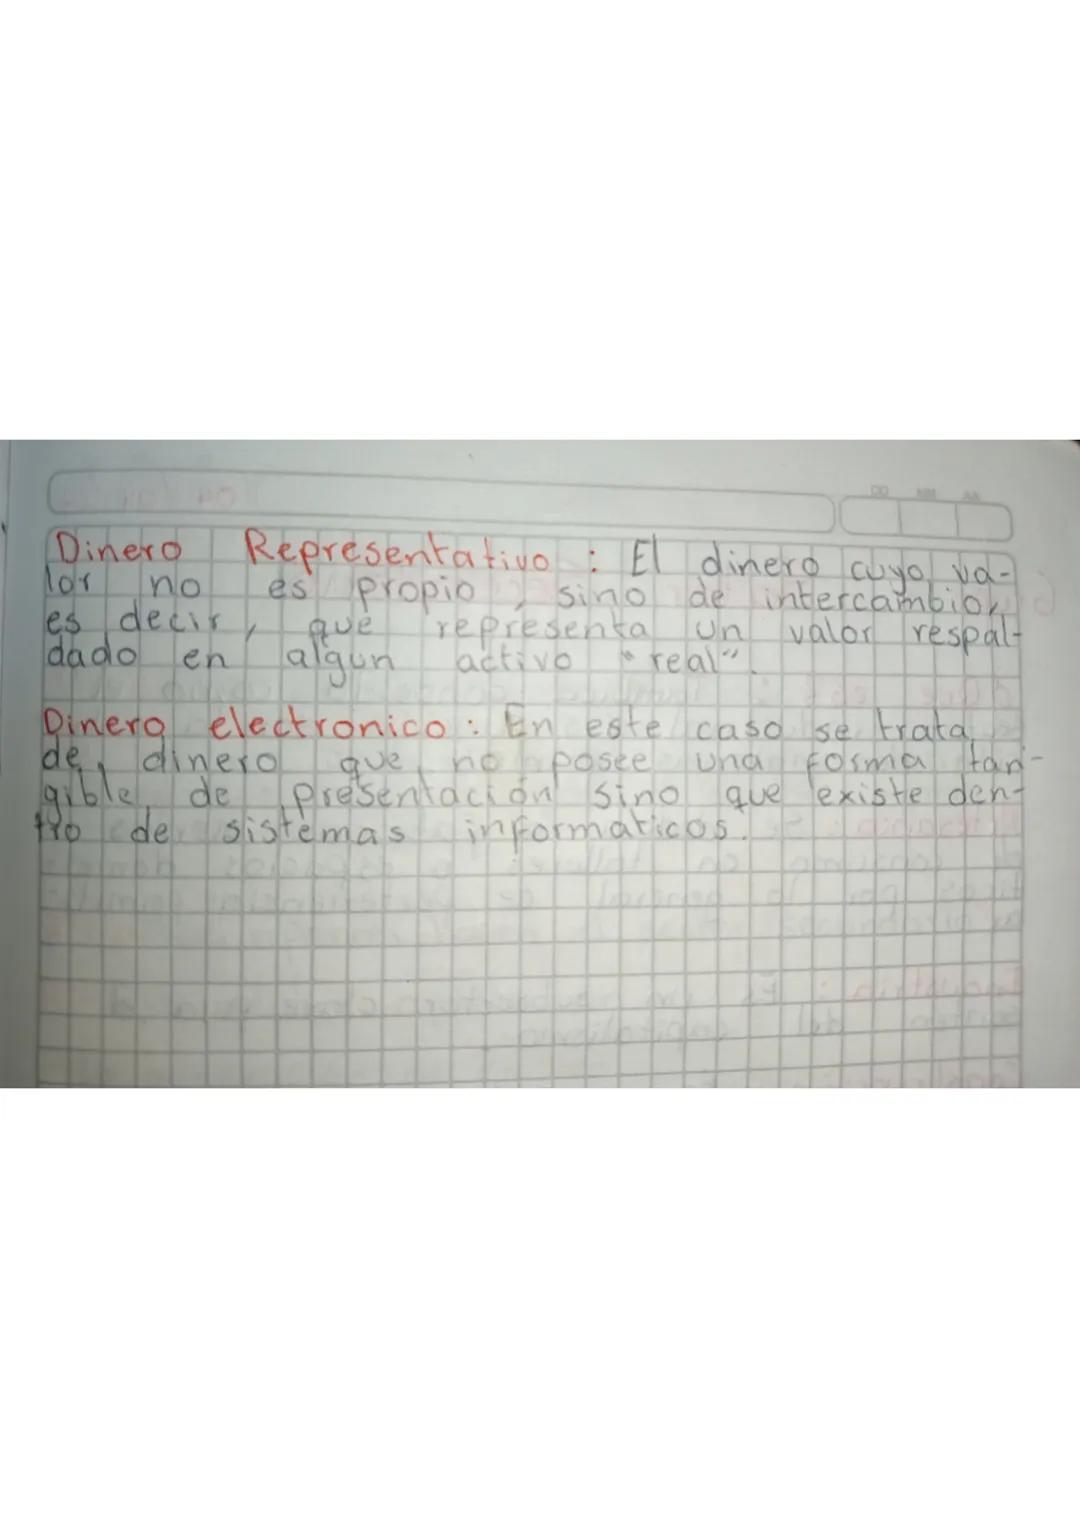 DD MM AA
Dinero Representativo : El dinero cuyo va-
lor no es propio, sino de intercambio,
es decir, que representa un valor respal-
dado en algun activo "real".
Dinero electronico : En este caso se trata
de dinero que no posee una forma tan-
gible de presentación sino que existe den-
tro de sistemas informaticos.